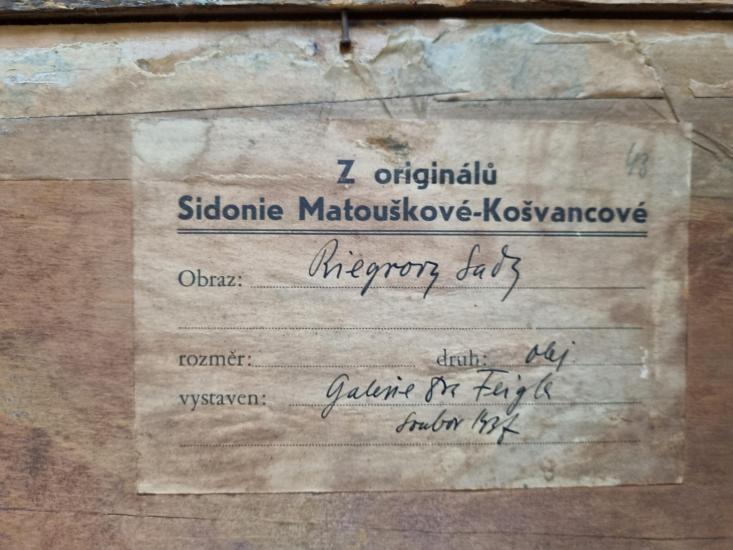 48
Z originálů
Sidonie Matouškové-Košvancové
Obraz: Riegrovy Sady
rozměr: druh: olej
vystaven: Galerie dra Feigla
Soubor 1937